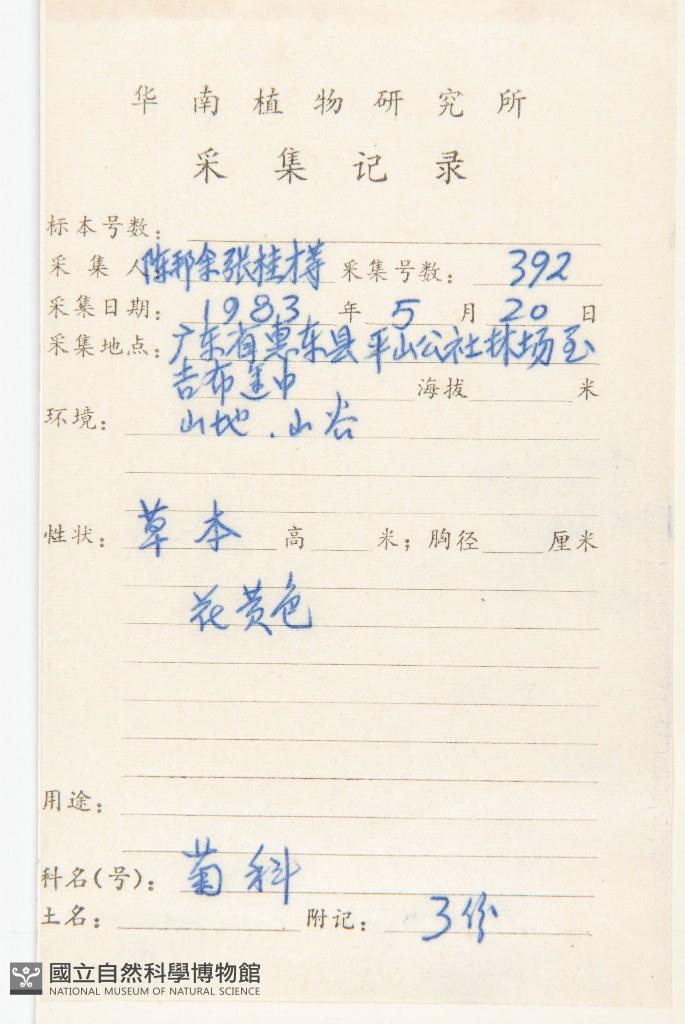 华南植物研究所
采集记录
标本号数：
采集人：陈邦余张桂才等 采集号数：392
采集日期：1983年5月20日
采集地点：广东省惠东县平山公社林场至
吉布途中 海拔 米
环境：山地．山谷
性状：草本 高 米；胸径 厘米
花黄色
用途：
科名(号)：菊科
土名： 附记：3份
國立自然科學博物館
NATIONAL MUSEUM OF NATURAL SCIENCE